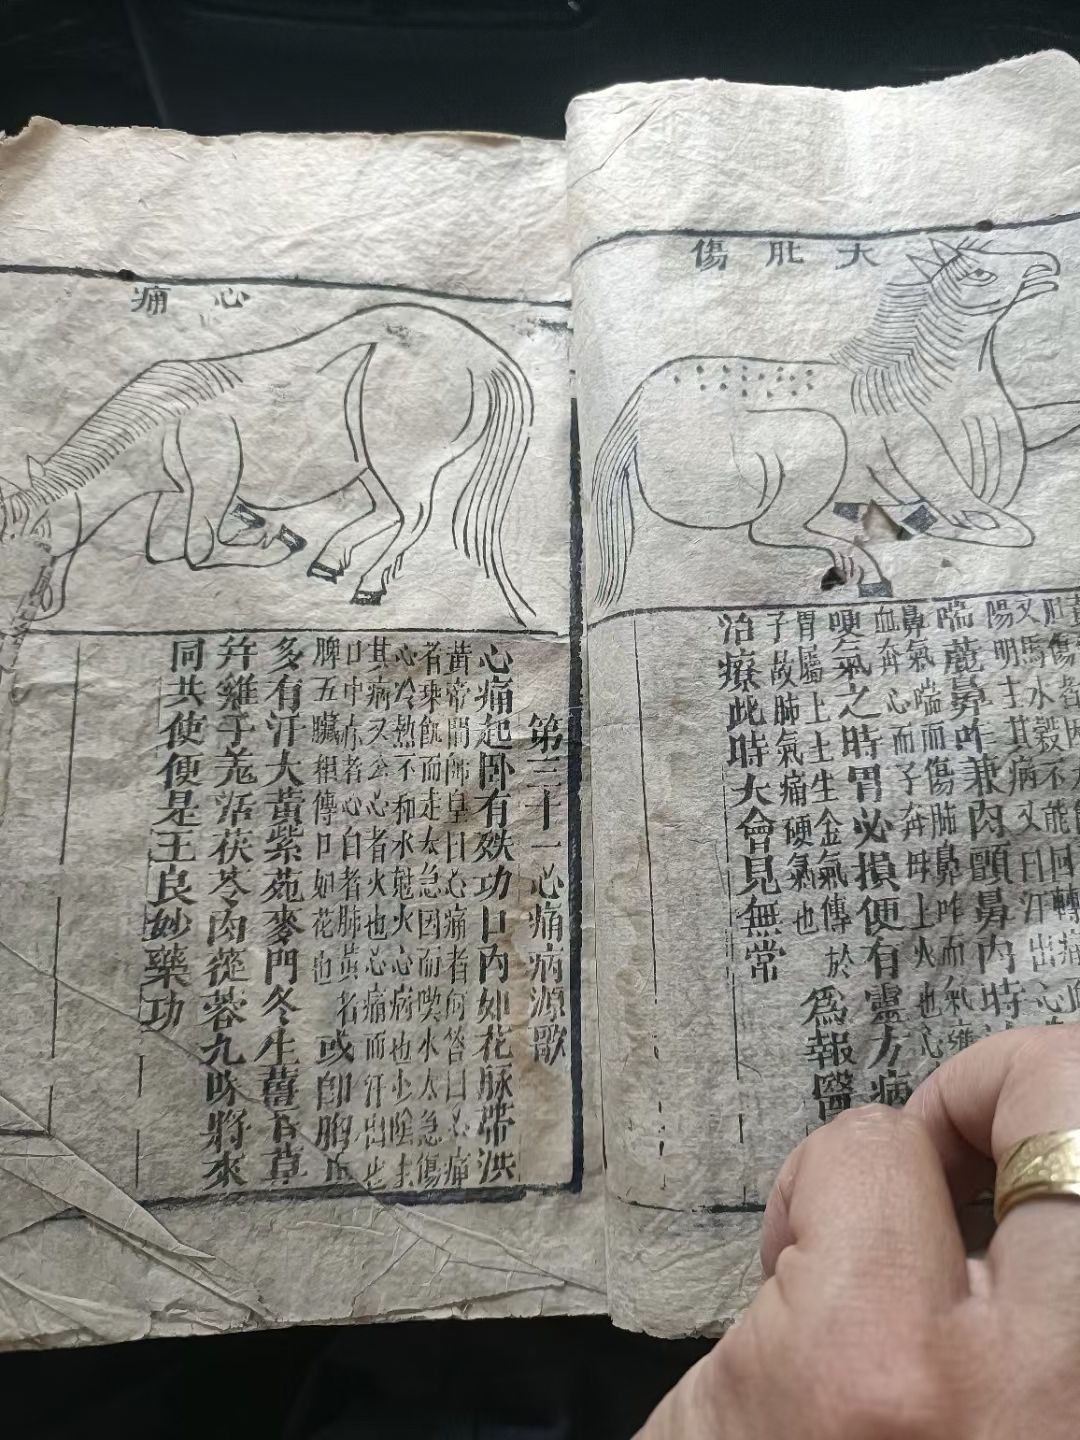 大肚傷
肚傷者因
又馬水穀不能回轉痛
陽明主其病又曰汗出心
喘麄鼻咋兼肉顫鼻內時
鼻氣喘而傷肺鼻咋而氣
血奔心而子奔母上火也心
哽氣之時胃必損便有靈方病
胃屬土土生金氣傳於
子故肺氣痛硬氣也
為報醫
治療此時大會見無常
心痛
第三十一心痛病源歌
心痛起卧有殃功口內如花脉帶洪
黃帝問師皇曰心痛者何答曰心痛
者乘飢而走太急因而喫水太急傷
心冷熱不和水尅火心病也少陰主
其病又云心者火也心痛而汗出也
口中赤者心白者肺黃名
脾五臟相傳口如花也
或卽胸
多有汗大黃紫菀麥門冬生薑甘草
并雞子羗活茯苓肉蓯蓉九味將來
同共使便是王良妙藥功